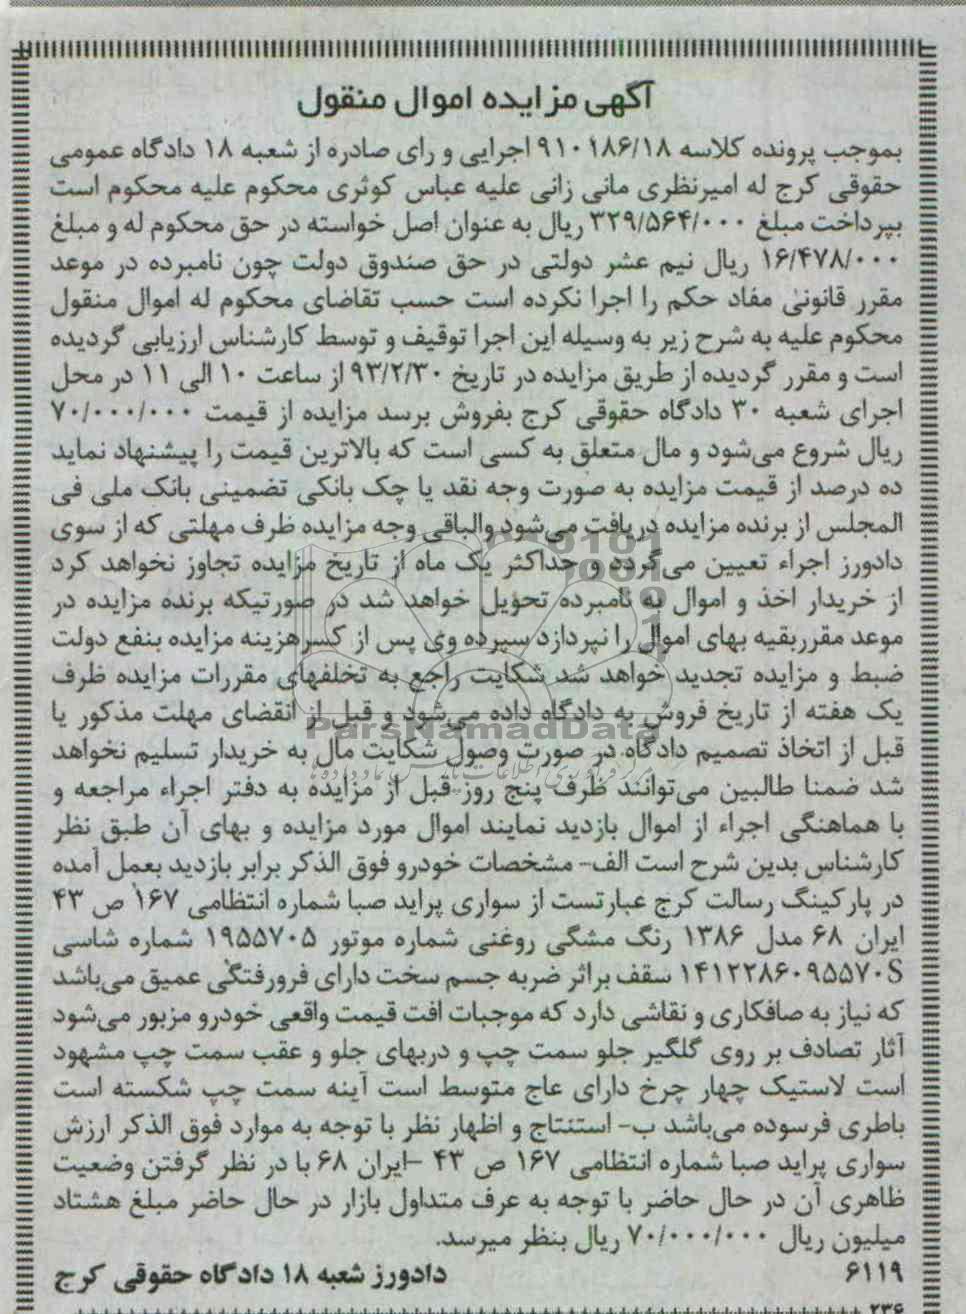 آگهی مزایده اموال منقول
بموجب پرونده کلاسه ۹۱۰۱۸۶/۱۸ اجرایی و رای صادره از شعبه ۱۸ دادگاه عمومی
حقوقی کرج له امیرنظری مانی زانی علیه عباس کوثری محکوم علیه محکوم است
بپرداخت مبلغ ۳۲۹/۵۶۴/۰۰۰ ریال به عنوان اصل خواسته در حق محکوم له و مبلغ
۱۶/۴۷۸/۰۰۰ ریال نیم عشر دولتی در حق صندوق دولت چون نامبرده در موعد
مقرر قانونی مفاد حکم را اجرا نکرده است حسب تقاضای محکوم له اموال منقول
محکوم علیه به شرح زیر به وسیله این اجرا توقیف و توسط کارشناس ارزیابی گردیده
است و مقرر گردیده از طریق مزایده در تاریخ ۹۳/۲/۳۰ از ساعت ۱۰ الی ۱۱ در محل
اجرای شعبه ۳۰ دادگاه حقوقی کرج بفروش برسد مزایده از قیمت ۷۰/۰۰۰/۰۰۰
ریال شروع می‌شود و مال متعلق به کسی است که بالاترین قیمت را پیشنهاد نماید
ده درصد از قیمت مزایده به صورت وجه نقد یا چک بانکی تضمینی بانک ملی فی
المجلس از برنده مزایده دریافت می‌شود والباقی وجه مزایده ظرف مهلتی که از سوی
دادورز اجراء تعیین می‌گردد و حداکثر یک ماه از تاریخ مزایده تجاوز نخواهد کرد
از خریدار اخذ و اموال به نامبرده تحویل خواهد شد در صورتیکه برنده مزایده در
موعد مقرربقیه بهای اموال را نپردازد سپرده وی پس از کسرهزینه مزایده بنفع دولت
ضبط و مزایده تجدید خواهد شد شکایت راجع به تخلفهای مقررات مزایده ظرف
یک هفته از تاریخ فروش به دادگاه داده می‌شود و قبل از انقضای مهلت مذکور یا
قبل از اتخاذ تصمیم دادگاه در صورت وصول شکایت مال به خریدار تسلیم نخواهد
شد ضمنا طالبین می‌توانند ظرف پنج روز قبل از مزایده به دفتر اجراء مراجعه و
با هماهنگی اجراء از اموال بازدید نمایند اموال مورد مزایده و بهای آن طبق نظر
کارشناس بدین شرح است الف- مشخصات خودرو فوق الذکر برابر بازدید بعمل آمده
در پارکینگ رسالت کرج عبارتست از سواری پراید صبا شماره انتظامی ۱۶۷ ص ۴۳
ایران ۶۸ مدل ۱۳۸۶ رنگ مشگی روغنی شماره موتور ۱۹۵۵۷۰۵ شماره شاسی
S۱۴۱۲۲۸۶۰۹۵۵۷۰ سقف براثر ضربه جسم سخت دارای فرورفتگی عمیق می‌باشد
که نیاز به صافکاری و نقاشی دارد که موجبات افت قیمت واقعی خودرو مزبور می‌شود
آثار تصادف بر روی گلگیر جلو سمت چپ و دربهای جلو و عقب سمت چپ مشهود
است لاستیک چهار چرخ دارای عاج متوسط است آینه سمت چپ شکسته است
باطری فرسوده می‌باشد ب- استنتاج و اظهار نظر با توجه به موارد فوق الذکر ارزش
سواری پراید صبا شماره انتظامی ۱۶۷ ص ۴۳ -ایران ۶۸ با در نظر گرفتن وضعیت
ظاهری آن در حال حاضر با توجه به عرف متداول بازار در حال حاضر مبلغ هشتاد
میلیون ریال ۷۰/۰۰۰/۰۰۰ ریال بنظر میرسد.
۶۱۱۹ دادورز شعبه ۱۸ دادگاه حقوقی کرج
ParsNamadData